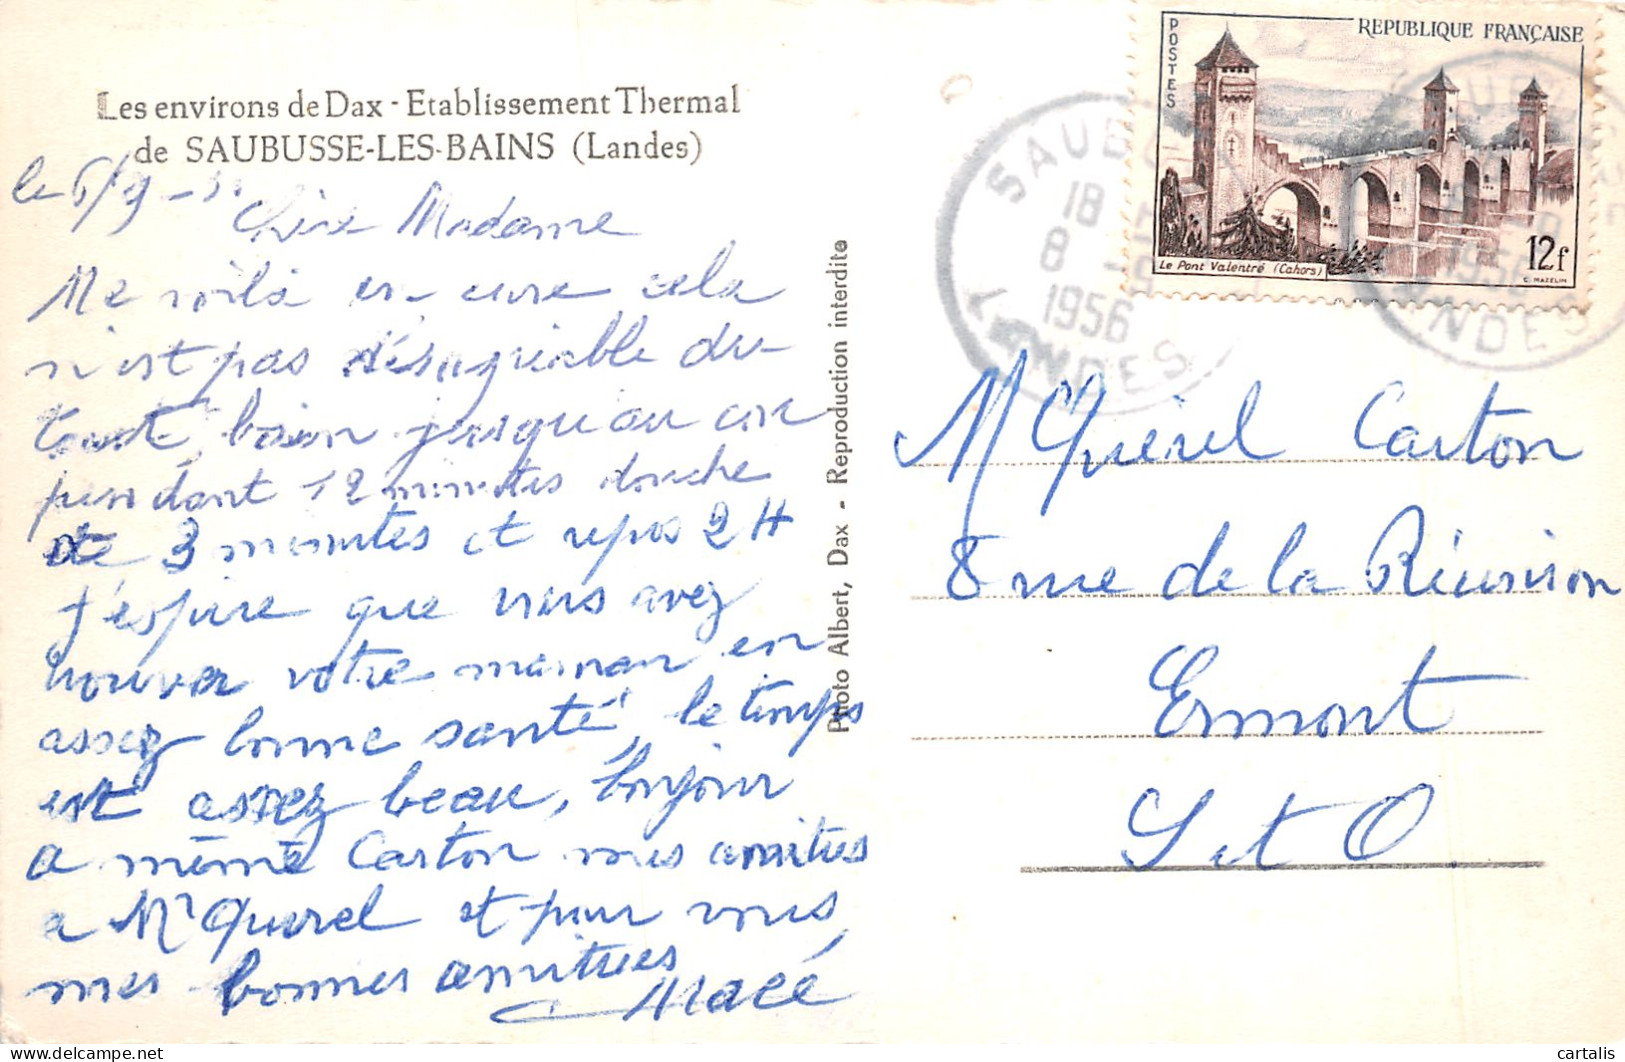 Les environs de Dax - Etablissement Thermal
de SAUBUSSE-LES-BAINS (Landes)
le 6/9 -
Chère Madame
Me voilà en cure cela
n'est pas désagréable du
tout bain jusqu'au cou
pendant 12 minutes douche
de 3 minutes et repos 2 H
j'espère que vous avez
trouver votre maman en
assez bonne santé, le temps
est assez beau, bonjour
a même Carton mes amitiés
a Mr Querel et pour vous
mes bonnes amitiées
Macé
Photo Albert, Dax - Reproduction interdite
POSTES
REPUBLIQUE FRANÇAISE
Le Pont Valentré (Cahors)
12f
C. MAZELIN
SAUBU
18
8 - 9
1956
LANDES
1956
NDES
M Querel Carton
8 rue de la Réunion
Ermont
S et O
cartalis